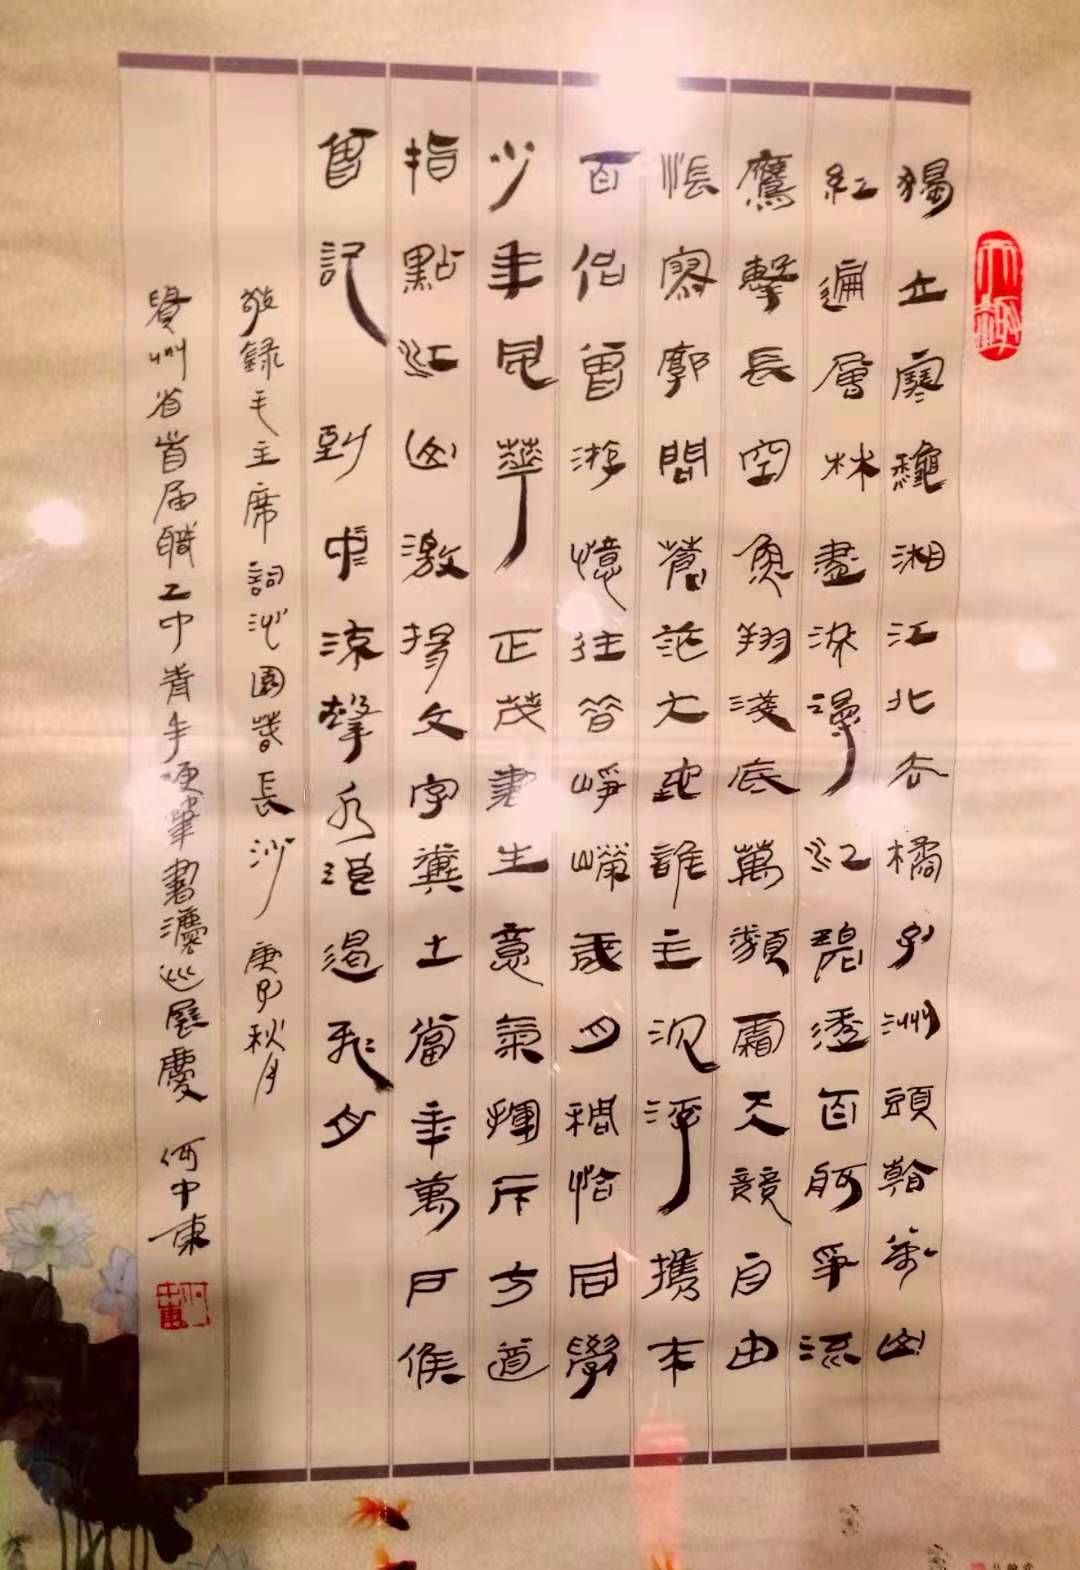 獨立寒龝湘江北去橘子洲頭看萬山
紅遍層林盡染漫江碧透百舸爭流
鷹擊長空魚翔淺底萬類霜天競自由
悵寥廓問蒼茫大地誰主沉浮攜來
百侶曾游憶往昔崢嶸歲月稠恰同學
少年風華正茂書生意氣揮斥方遒
指點江山激揚文字糞土當年萬戶侯
曾記到中流擊水浪遏飛舟
敬録毛主席詞沁園春長沙 庚子秋月
貴州省首届職工中青年硬筆書灋巡展慶 何中東